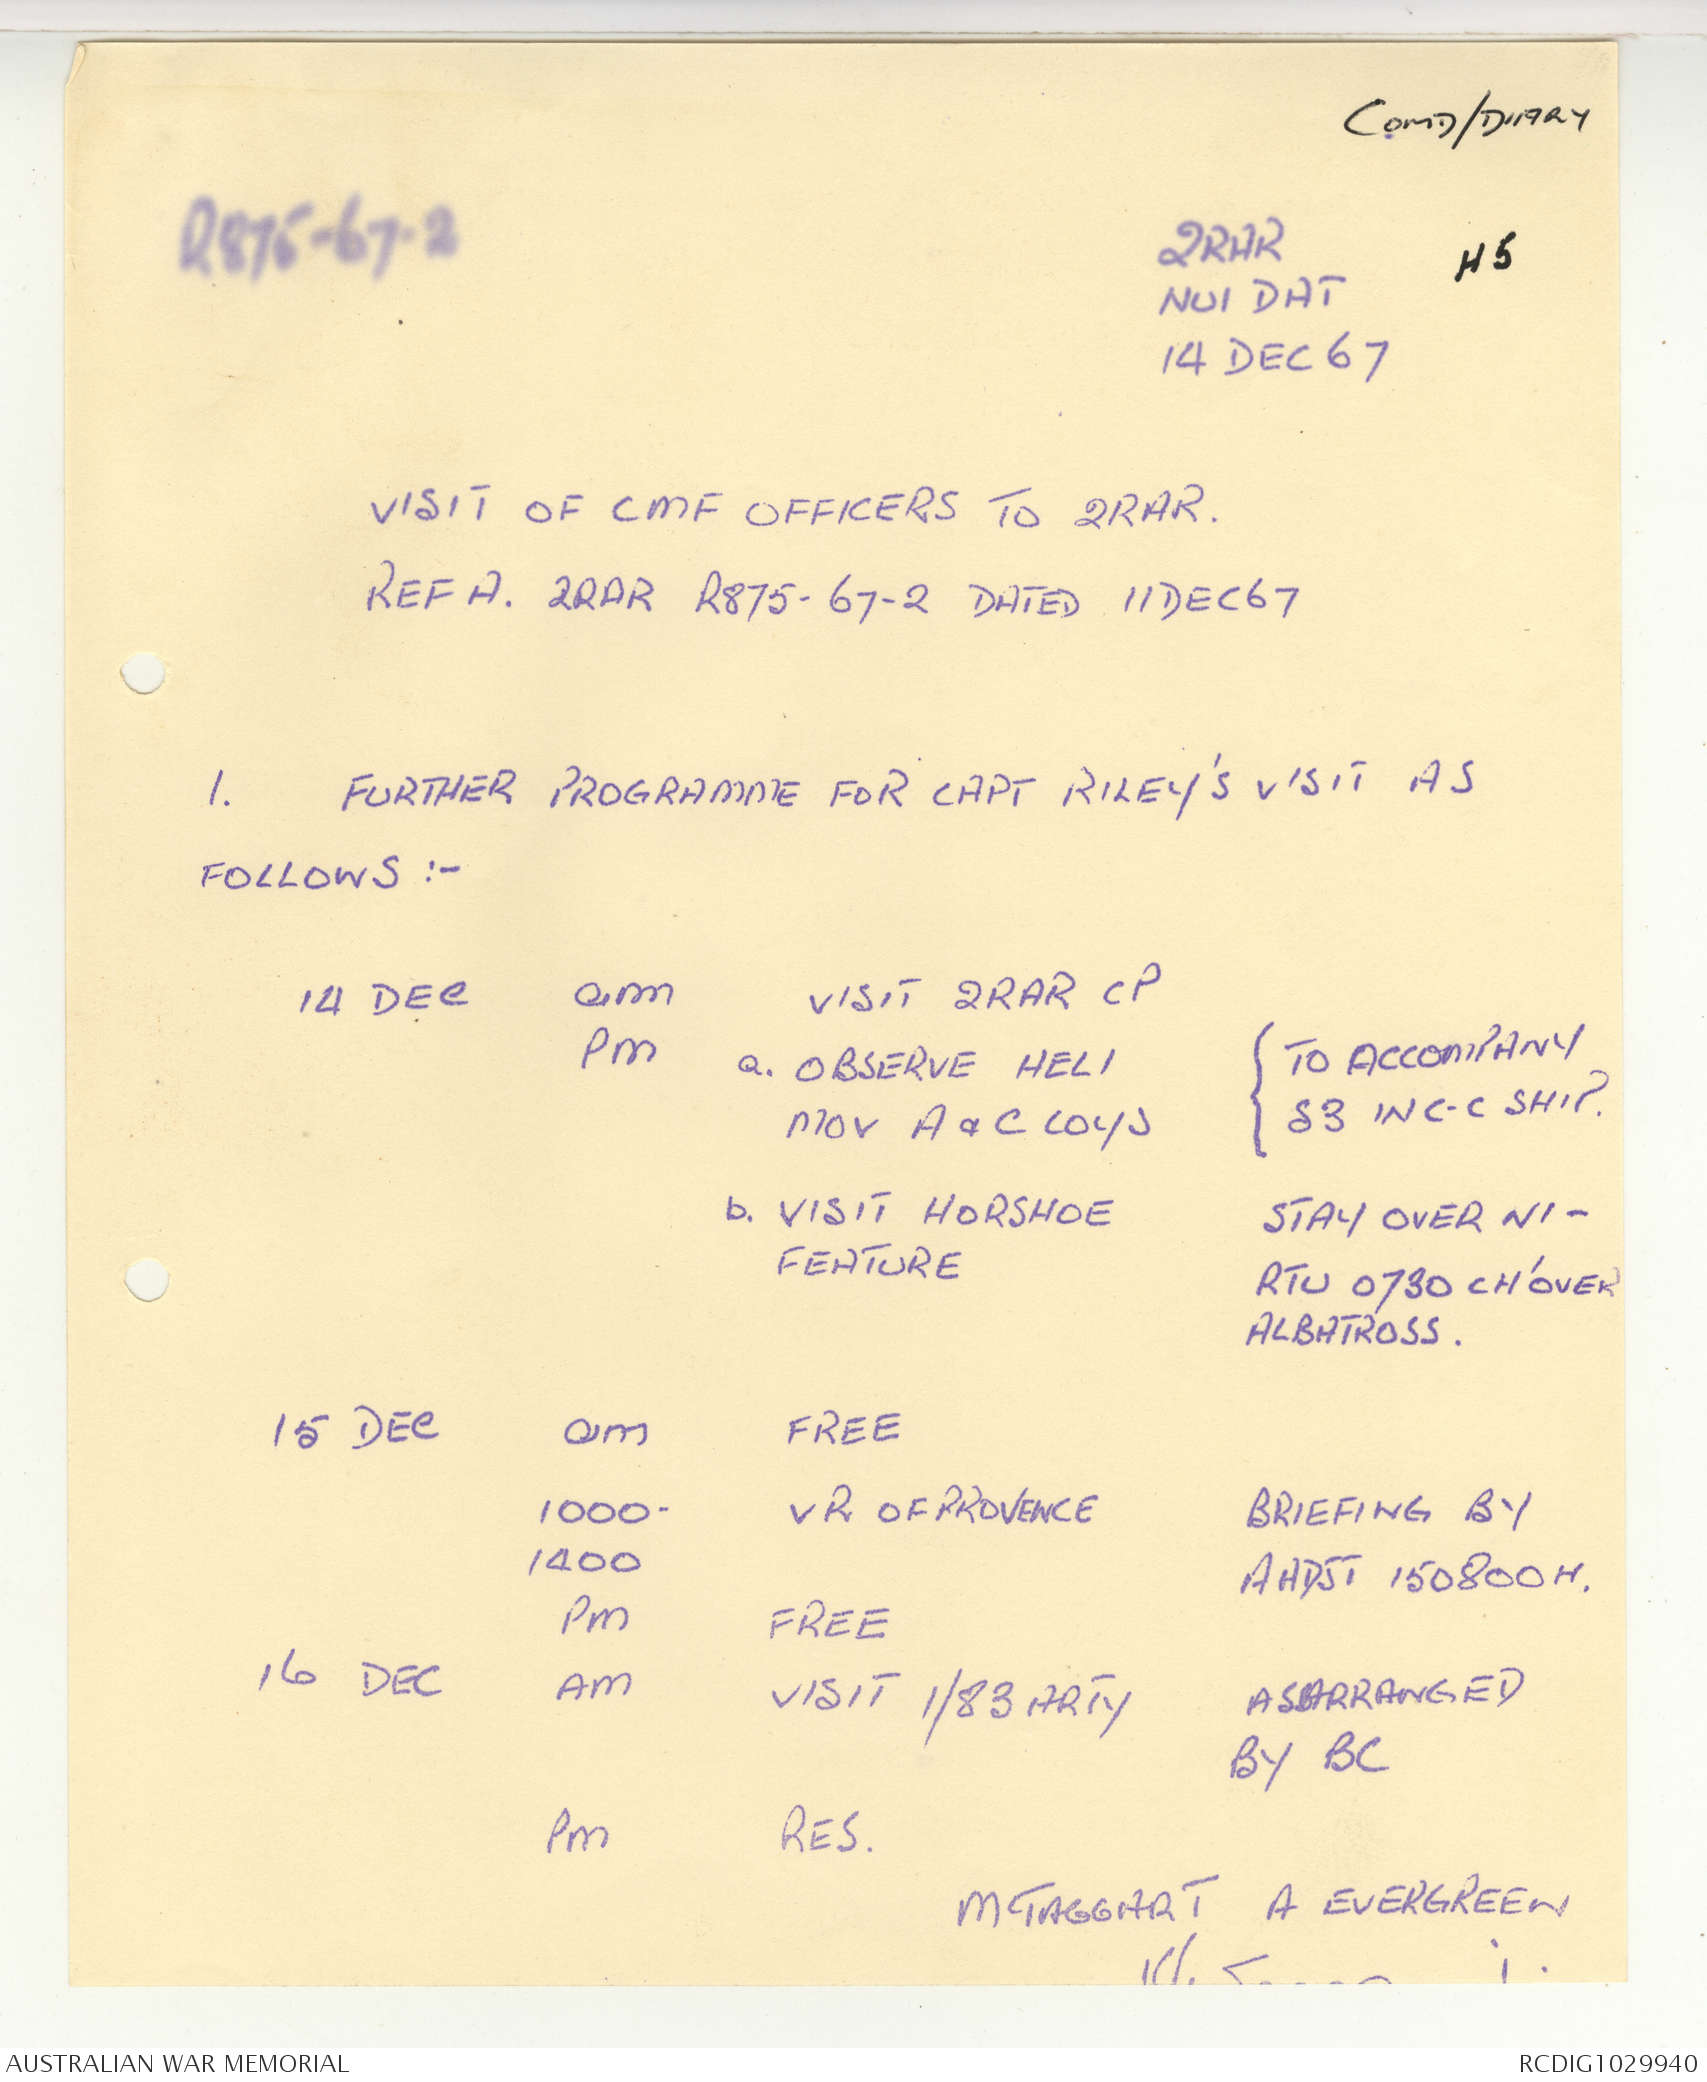 COMD/DIARY
R875-67-2
2RAR
H5
NUI DAT
14 DEC 67
VISIT OF CMF OFFICERS TO 2RAR.
REF A. 2RAR R875-67-2 DATED 11DEC67
1. FURTHER PROGRAMME FOR CAPT RILEY'S VISIT AS
FOLLOWS :-
14 DEC am VISIT 2RAR CP
PM a. OBSERVE HELI { TO ACCOMPANY
MOV A & C COYS S3 IN C-C SHIP.
b. VISIT HORSHOE STAY OVER NI -
FEATURE RTU 0730 CH'OVER
ALBATROSS.
15 DEC am FREE
1000- VR OF PROVENCE BRIEFING BY
1400 150800H.
PM FREE
16 DEC AM VISIT 1/83 ARTY AS ARRANGED
BY BC
PM RES.
MCTAGGART A EVERGREEN
AUSTRALIAN WAR MEMORIAL
RCDIG1029940